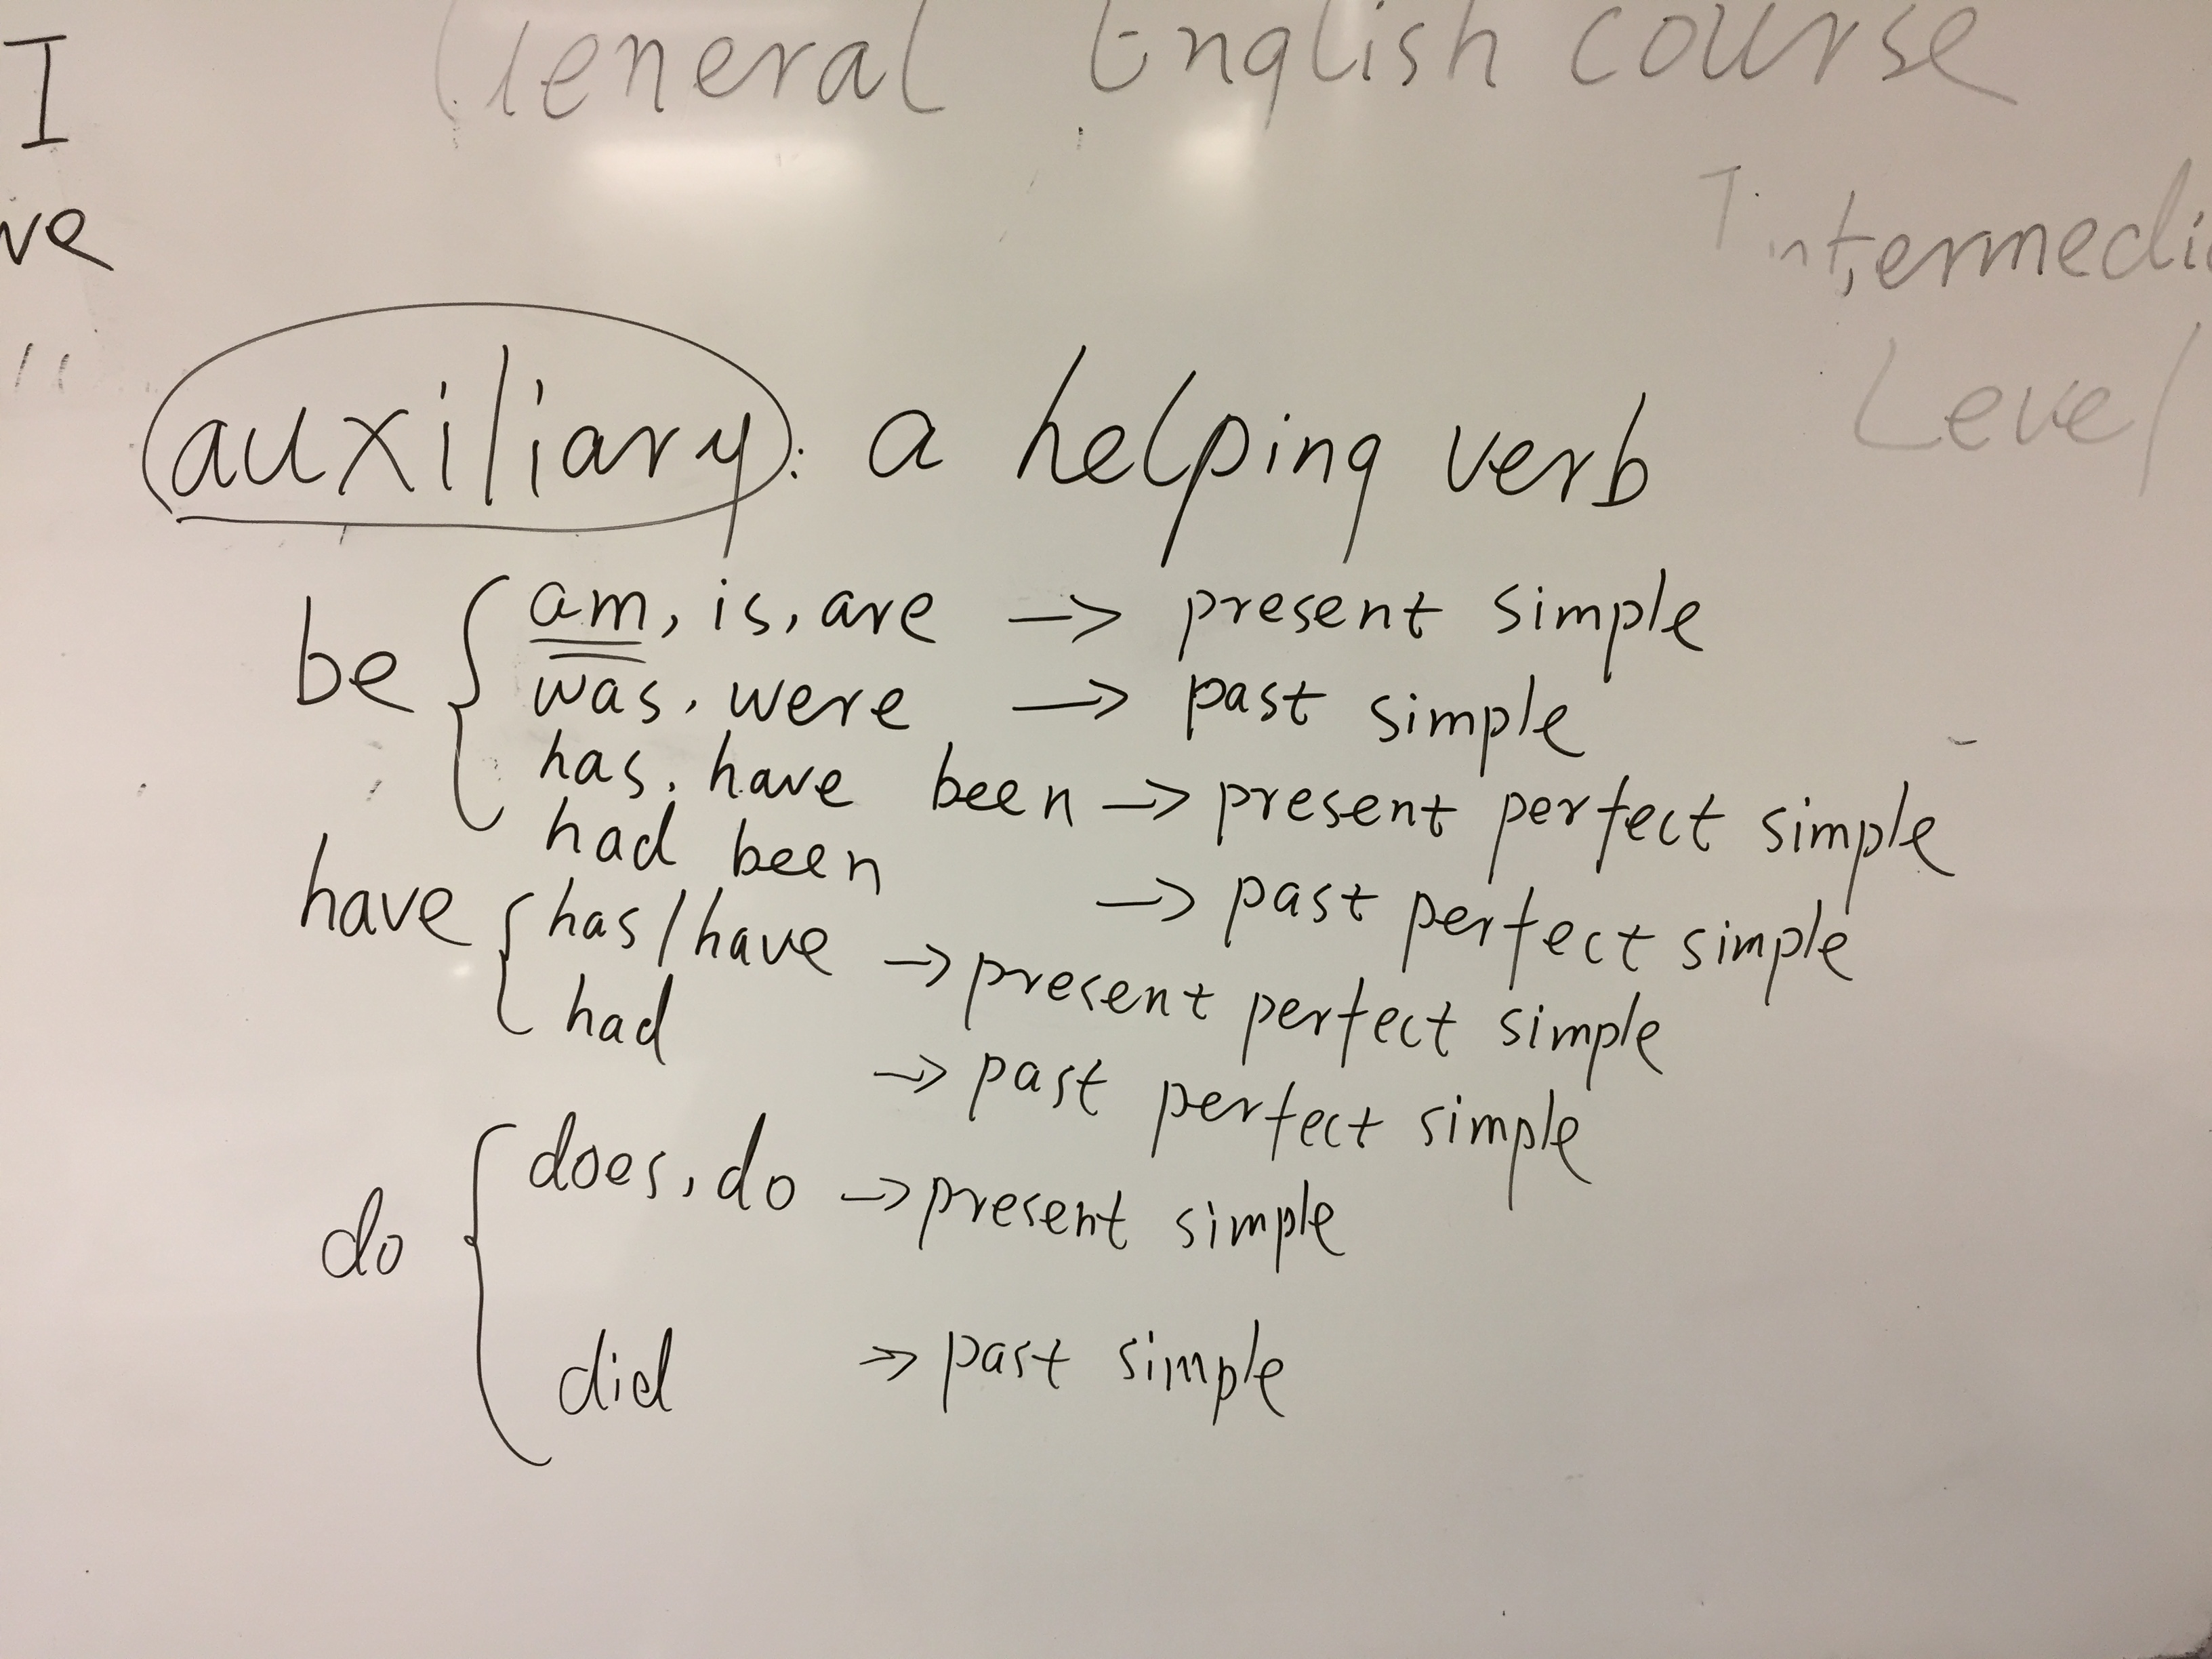 General English course
I
Intermedi
ve
Level
auxiliary: a helping verb
be { am, is, are → present simple
was, were → past simple
has, have been → present perfect simple
had been → past perfect simple
have { has/have → present perfect simple
had → past perfect simple
do { does, do → present simple
did → past simple